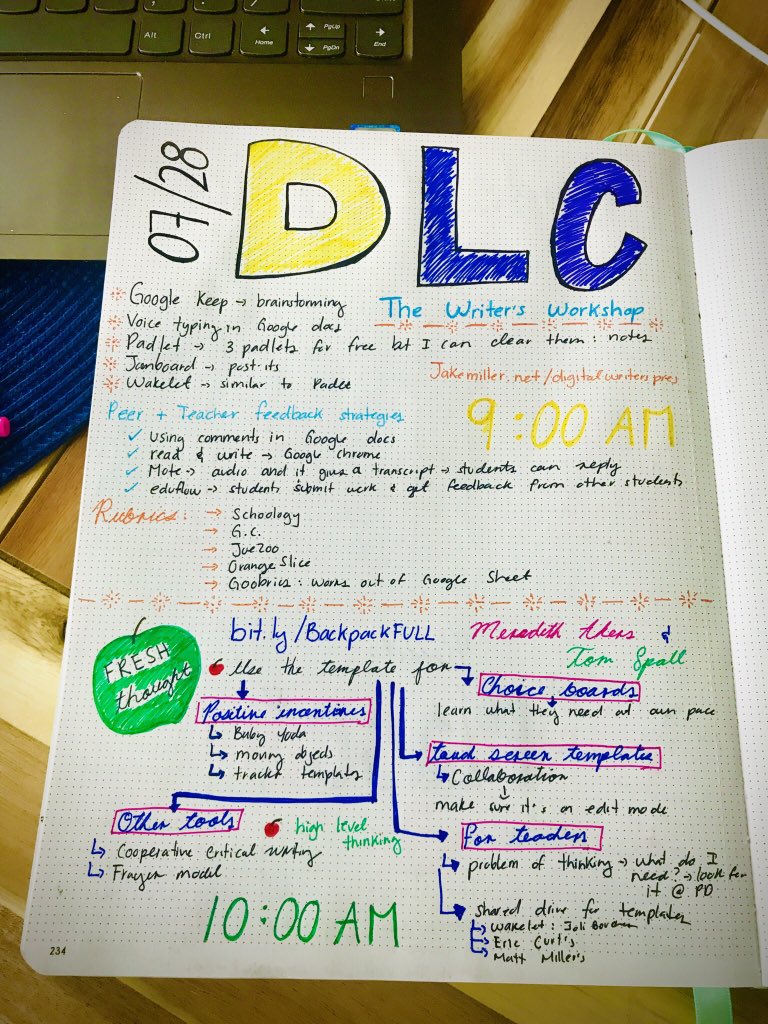 Alt
Ctrl
Home
PgUp
PgDn
End
07/28
DLC
The Writer's Workshop
Google Keep → brainstorming
Voice typing in Google docs
Padlet → 3 padlets for free but I can clear them: notes
Jamboard → post-its
Wakelet → similar to Padlet
Jakemiller.net/digitalwriterspres
9:00 AM
Peer + Teacher feedback strategies
✓ Using comments in Google docs
✓ read & write → Google chrome
✓ Mote → audio and it gives a transcript → students can reply
✓ eduflow → students submit work & get feedback from other students
Rubrics:
→ Schoology
→ G.C.
→ JoeZoo
→ Orange Slice
→ Goobrics: works out of Google Sheet
bit.ly/BackpackFULL
Meredith Akers &
Tom Spall
FRESH
thought
Use the template for
Choice boards
learn what they need at own pace
Positive incentives
Baby Yoda
moving objects
tracker templates
touch screen templates
Collaboration
make sure it's on edit mode
Other tools
Cooperative critical writing
Frayer model
high level
thinking
for teachers
problem of thinking → what do I
need? → look for
it @ PD
shared drive for templates
Wakelet:
Eric Curtis
Matt Miller's
10:00 AM
234